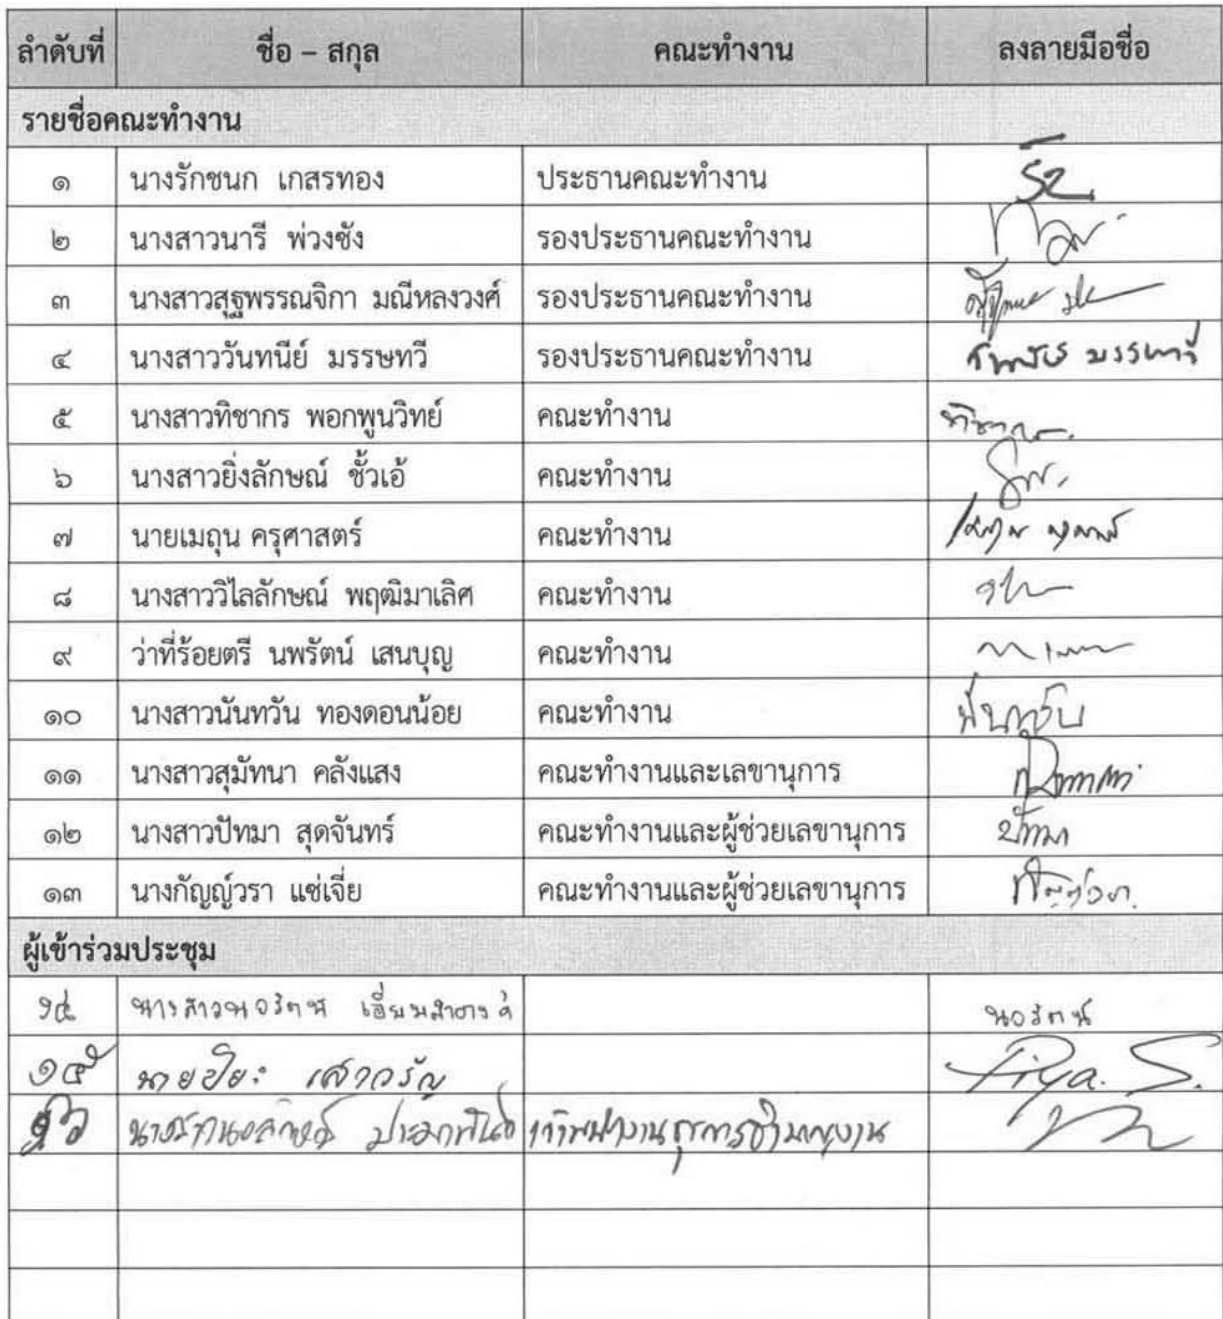 ลำดับที่ ชื่อ – สกุล คณะทำงาน ลงลายมือชื่อ
รายชื่อคณะทำงาน
๑ นางรักชนก เกสรทอง ประธานคณะทำงาน
๒ นางสาวนารี พ่วงซัง รองประธานคณะทำงาน
๓ นางสาวสุฐพรรณจิกา มณีหลงวงศ์ รองประธานคณะทำงาน
๔ นางสาววันทนีย์ มรรษทวี รองประธานคณะทำงาน
๕ นางสาวทิชากร พอกพูนวิทย์ คณะทำงาน ทิชากร
๖ นางสาวยิ่งลักษณ์ ชั้วเอ้ คณะทำงาน
๗ นายเมถุน ครุศาสตร์ คณะทำงาน
๘ นางสาววิไลลักษณ์ พฤฒิมาเลิศ คณะทำงาน
๙ ว่าที่ร้อยตรี นพรัตน์ เสนบุญ คณะทำงาน
๑๐ นางสาวนันทวัน ทองดอนน้อย คณะทำงาน
๑๑ นางสาวสุมัทนา คลังแสง คณะทำงานและเลขานุการ
๑๒ นางสาวปัทมา สุดจันทร์ คณะทำงานและผู้ช่วยเลขานุการ ปัทมา
๑๓ นางกัญญ์วรา แซ่เจี่ย คณะทำงานและผู้ช่วยเลขานุการ
ผู้เข้าร่วมประชุม
๑๔ นางสาว
๑๕ นายปิยะ Piya. S.
๑๖ เจ้าพนักงานธุรการชำนาญงาน